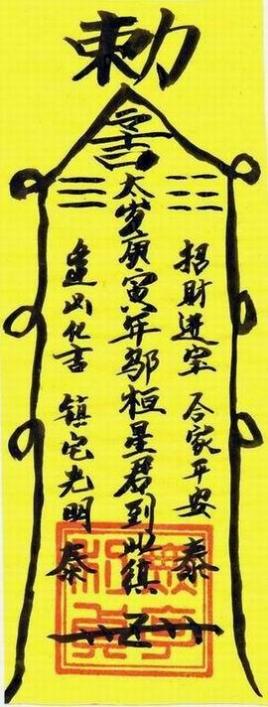 勅
令
招財进宝 合家平安 泰
太岁庚寅年邬桓星君到此镇
逢凶化吉 镇宅光明 泰